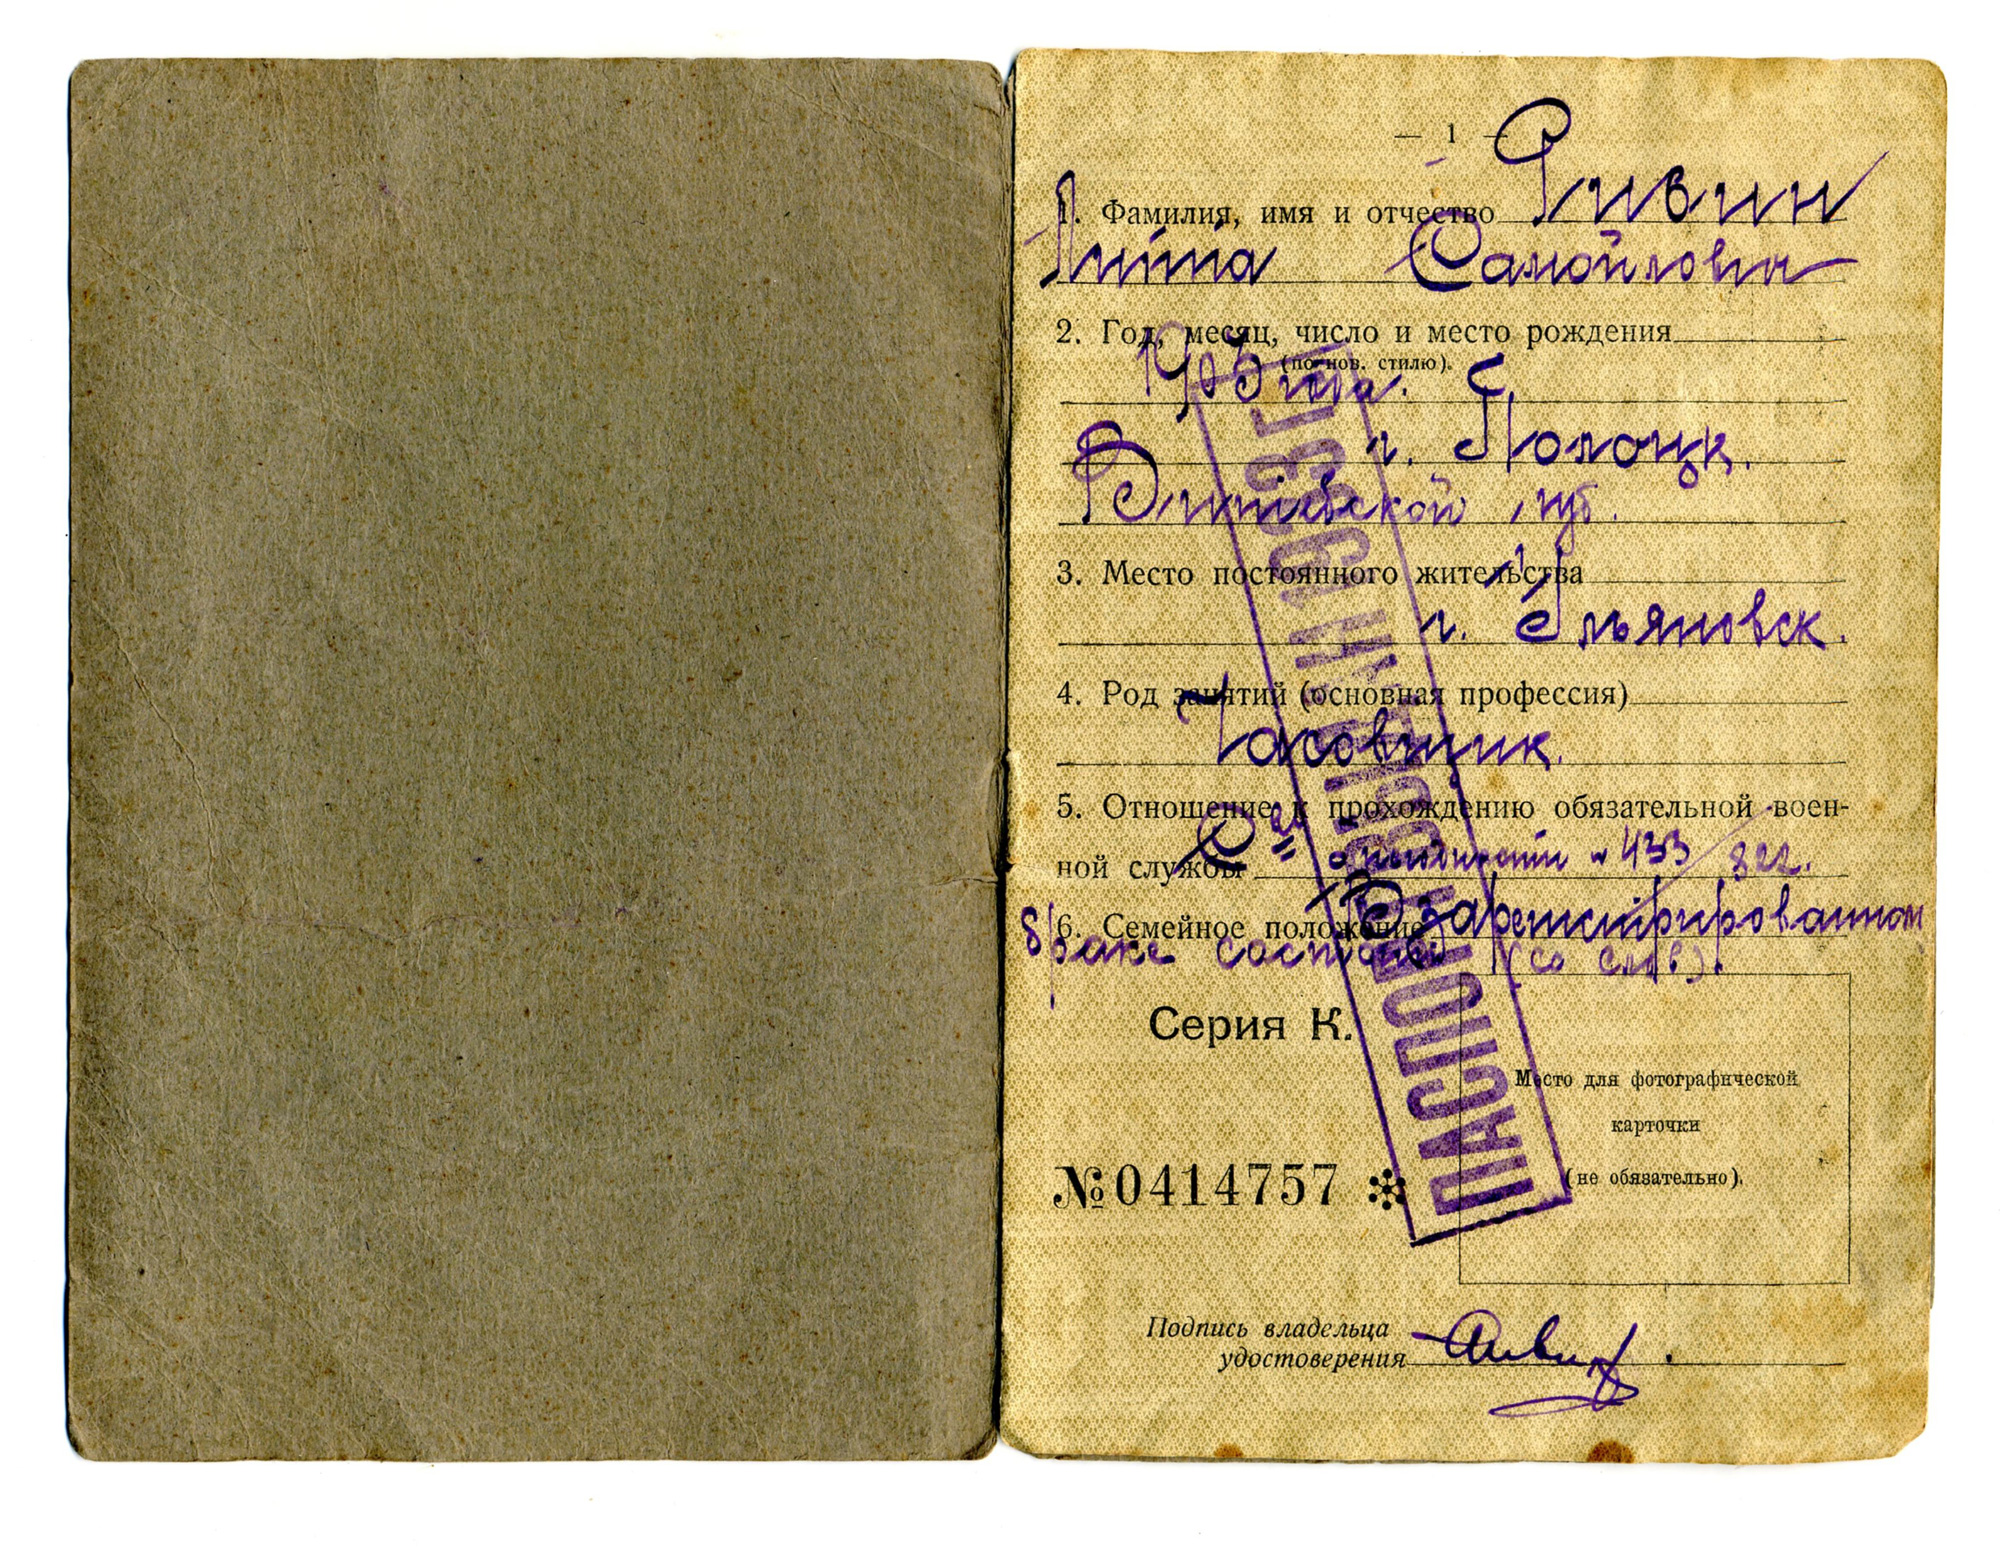 — 1 —
1. Фамилия, имя и отчество Ривин
Самойлович
2. Год, месяц, число и место рождения
(по нов. стилю).
1903 года.
г. Полоцк.
Витебской губ.
3. Место постоянного жительства
г. Ульяновск.
4. Род занятий (основная профессия)
Часовщик.
5. Отношение к прохождению обязательной воен-
ной службы № 433
6. Семейное положение В зарегистрированном
браке состоит (со слов).
Серия К.
Место для фотографической
карточки
(не обязательно).
№ 0414757
Подпись владельца
удостоверения
ПАСПОРТ ВЫДАН 1933 Г.